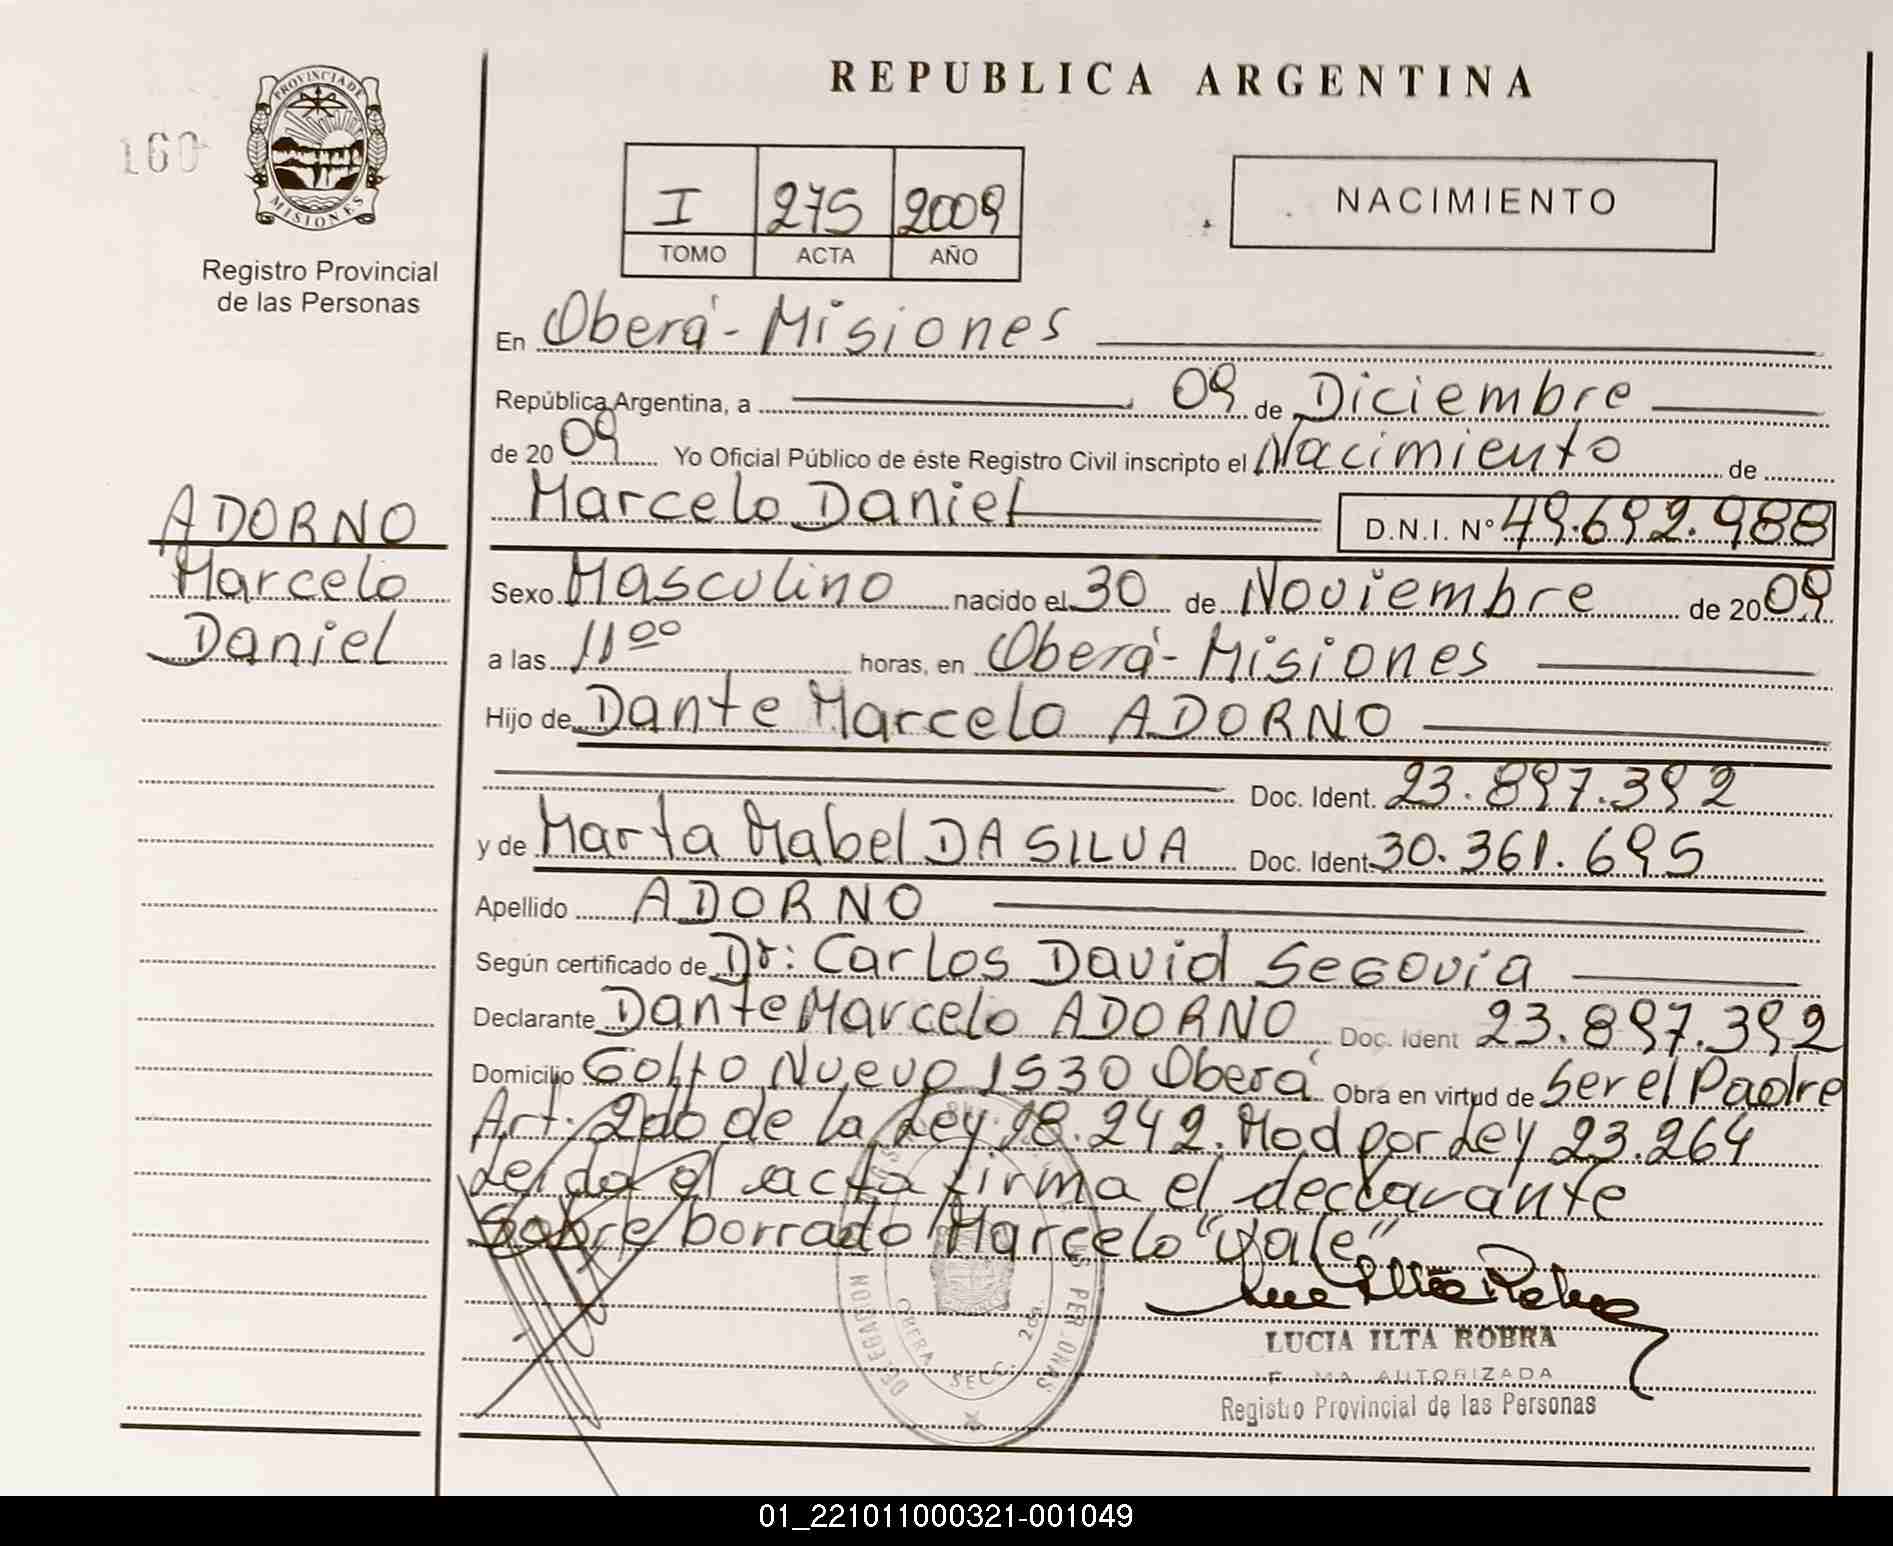 REPUBLICA ARGENTINA
PROVINCIA DE
MISIONES
160
Registro Provincial
de las Personas
I 275 2009
TOMO ACTA AÑO
NACIMIENTO
ADORNO
Marcelo
Daniel
En Oberá - Misiones
República Argentina, a 09 de Diciembre
de 20 09 Yo Oficial Público de éste Registro Civil inscripto el Nacimiento de
Marcelo Daniel D.N.I. N° 49.692.988
Sexo Masculino nacido el 30 de Noviembre de 20 09
a las 11⁰⁰ horas, en Oberá - Misiones
Hijo de Dante Marcelo ADORNO
Doc. Ident. 23.897.392
y de Marta Mabel DA SILVA Doc. Ident. 30.361.695
Apellido ADORNO
Según certificado de Dr: Carlos David Segovia
Declarante Dante Marcelo ADORNO Doc. Ident 23.897.392
Domicilio Golfo Nuevo 1530 Oberá Obra en virtud de Ser el Padre
Art. 2do de la Ley 18.242. Mod por Ley 23.264
Leída el acta firma el declarante
Sobre borrado Marcelo "Vale"
DELEGACION
PERSONAS
OBERA SECC. 2da.
LUCIA ILTA ROBRA
AUTORIZADA
Registro Provincial de las Personas
01_221011000321-001049